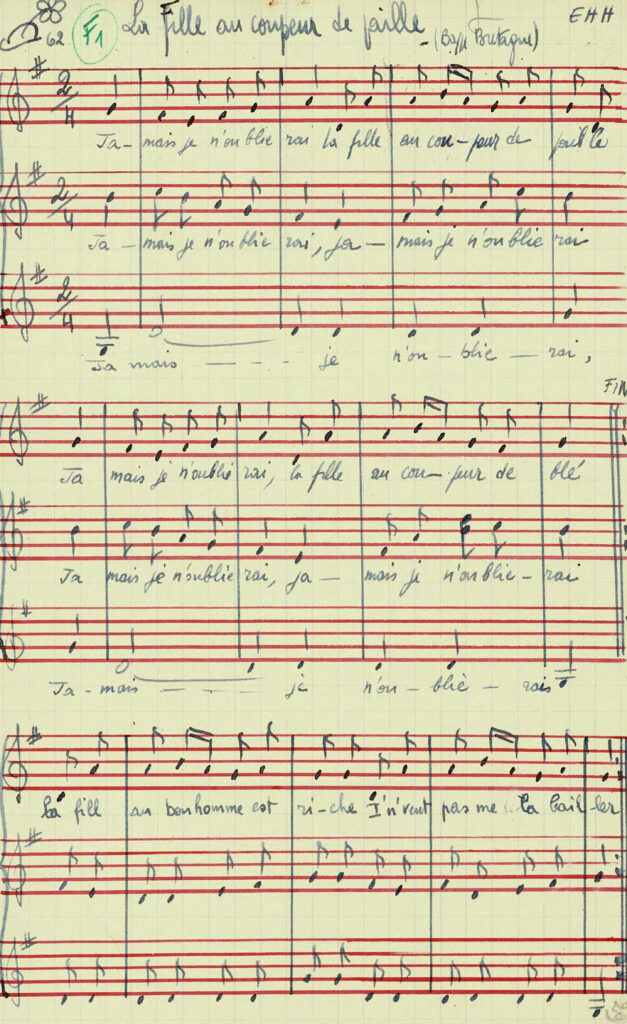 62 F1 La Fille au coupeur de paille (Basse Bretagne) EHH
2/4
Ja- mais je n'oublie rai la fille au cou-peur de paille
2/4
Ja - mais je n'oublie rai, ja - mais je n'oublie rai
2/4
Ja mais - - - je n'ou - blie - rai,
FIN
Ja mais je n'oublie rai, la fille au cou-peur de blé
Ja mais je n'oublie rai, ja - mais je n'oublie - rai
Ja - mais - - - je n'ou - blie - rais
La fill au bonhomme est ri-che I'n'veut pas me la bail ler